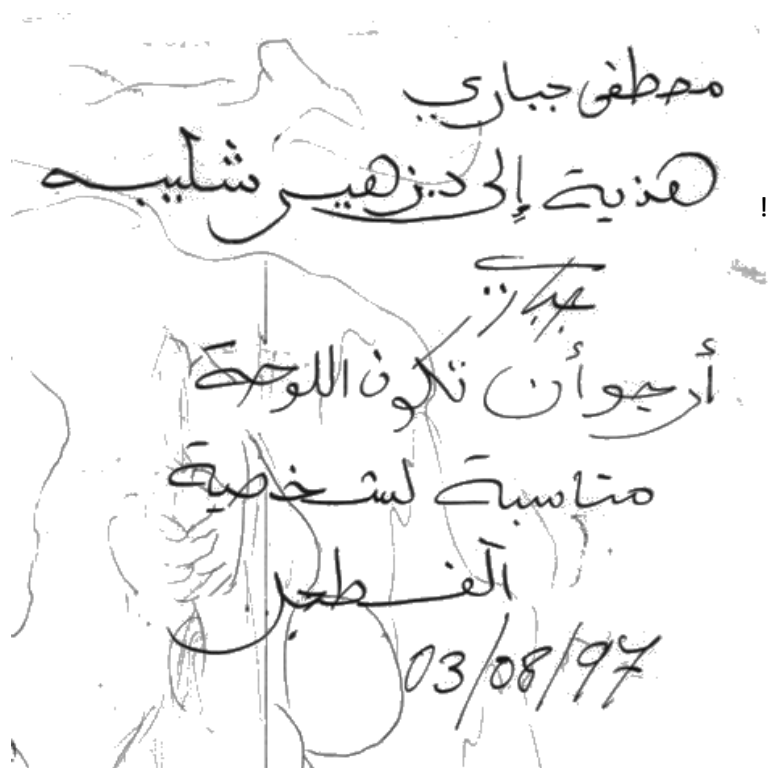 مصطفى جباري
هذية إلى د. زهير شليبه
!
أرجو أن تكون اللوحة
مناسبة لشخصية
الفطحل
03/08/97